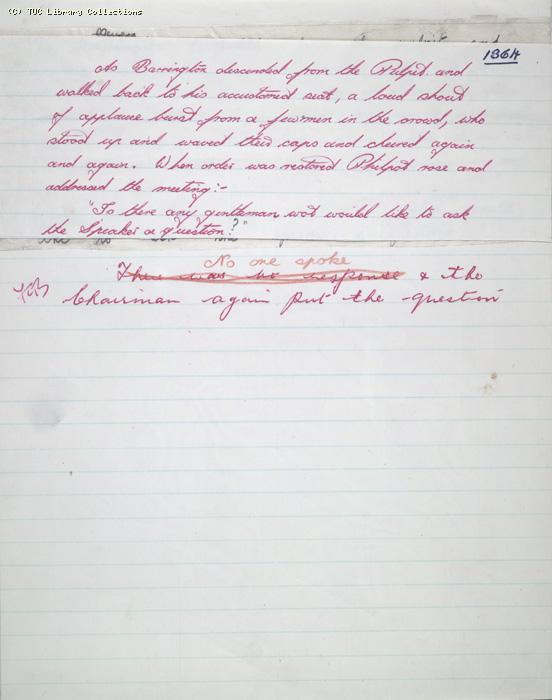 (C) TUC Library Collections
1364
As Barrington descended from the Pulpit and
walked back to his accustomed seat, a loud shout
of applause burst from a few men in the crowd, who
stood up and waved their caps and cheered again
and again. When order was restored Philpot rose and
addressed the meeting:-
"Is there any gentleman wot would like to ask
the Speaker a question?"
No one spoke
There was no response & the
Chairman again put the question